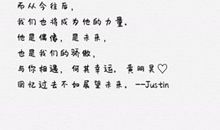 而从今往后，
我们也将成为他的力量。
他是偶像，是未来，
也是我们的骄傲。
与你相遇，何其幸运，黄明昊♡
回忆过去不如展望未来。--Justin